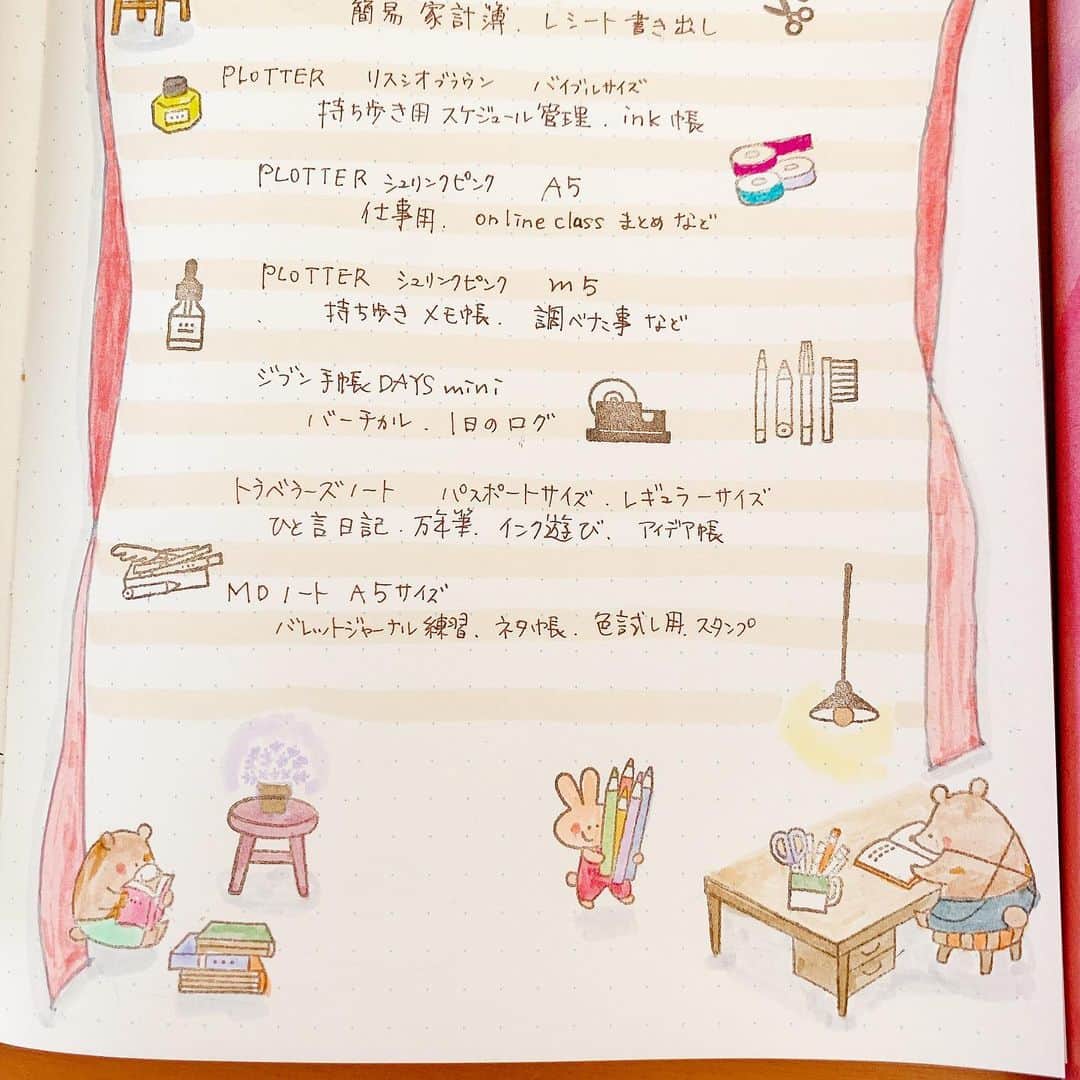 簡易家計簿、レシート書き出し
PLOTTER リスシオブラウン バイブルサイズ
持ち歩き用スケジュール管理、ink帳
PLOTTER シュリンクピンク A5
仕事用、online class まとめなど
PLOTTER シュリンクピンク m5
持ち歩きメモ帳、調べた事など
ジブン手帳DAYS mini
バーチカル、1日のログ
トラベラーズノート パスポートサイズ、レギュラーサイズ
ひと言日記、万年筆、インク遊び、アイデア帳
MDノート A5サイズ
バレットジャーナル練習、ネタ帳、色試し用、スタンプ